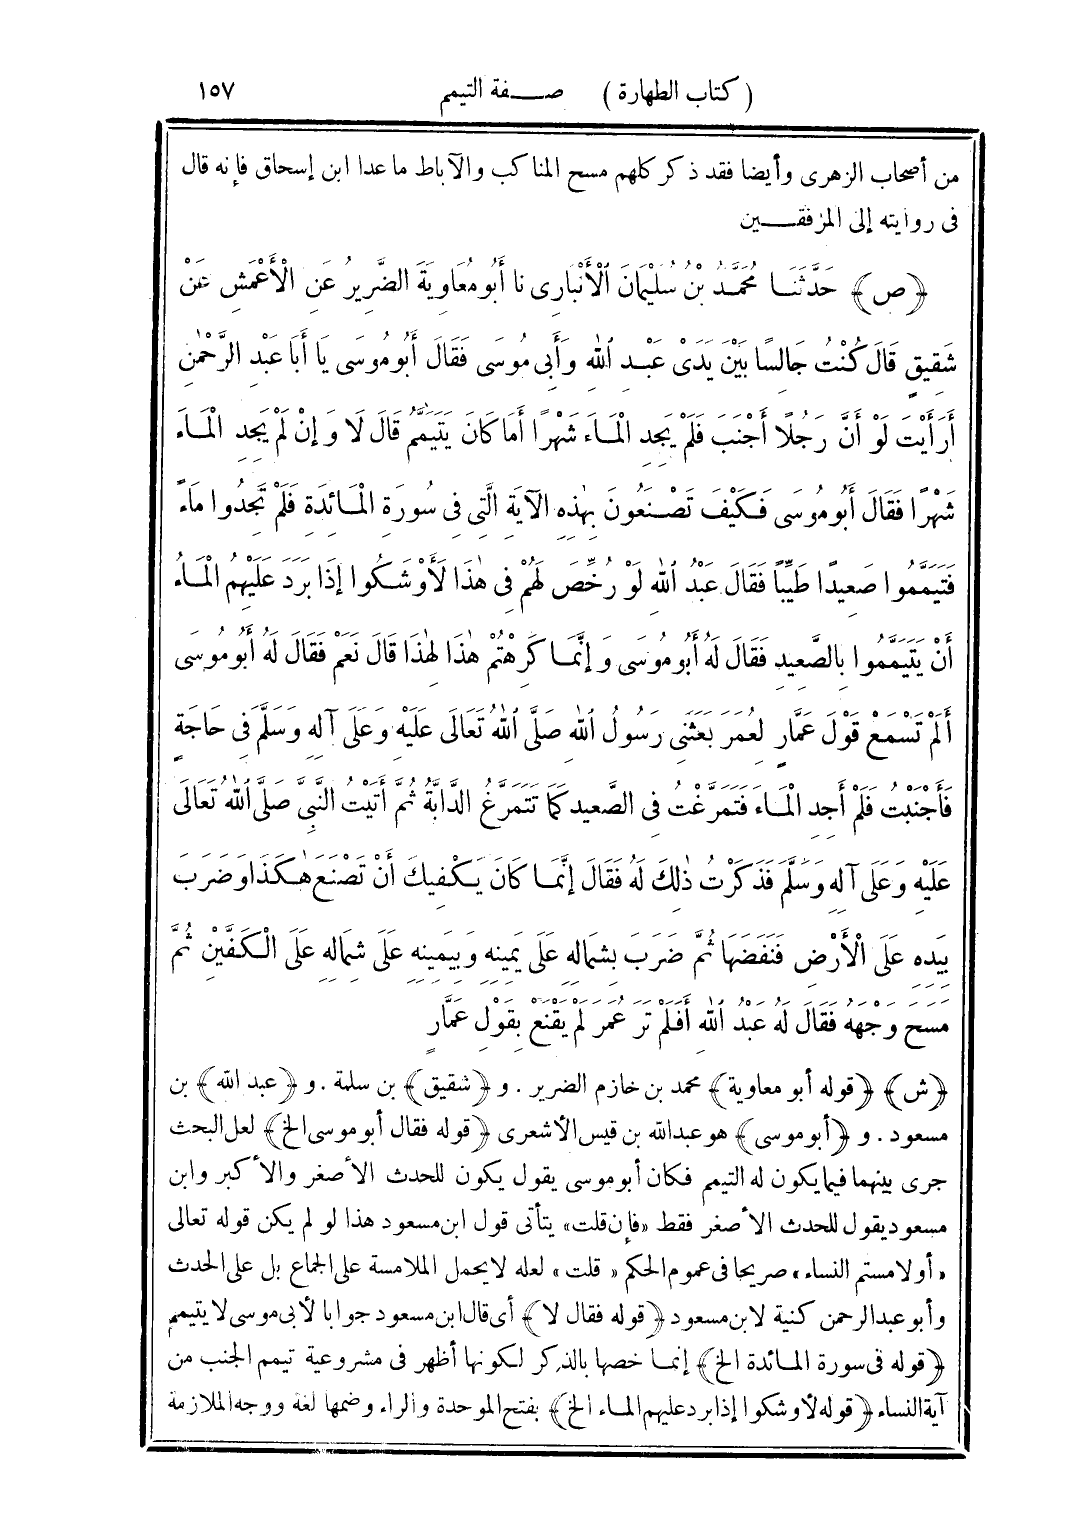 ( كتاب الطهارة ) صفة التيمم ١٥٧
من أصحاب الزهرى وأيضا فقد ذكر كلهم مسح المناكب والآباط ماعدا ابن إسحاق فإنه قال
فى روايته إلى المرفقين
﴿ ص ﴾ حَدَّثَنَا مُحَمَّدُ بْنُ سُلَيْمَانَ الْأَنْبَارِى نا أَبُو مُعَاوِيَةَ الضَّرِيرُ عَنِ الْأَعْمَشِ عَنْ
شَقِيقٍ قَالَ كُنْتُ جَالِسًا بَيْنَ يَدَىْ عَبْدِ اللهِ وَأَبِى مُوسَى فَقَالَ أَبُو مُوسَى يَا أَبَا عَبْدِ الرَّحْمٰنِ
أَرَأَيْتَ لَوْ أَنَّ رَجُلًا أَجْنَبَ فَلَمْ يَجِدِ الْمَاءَ شَهْرًا أَمَا كَانَ يَتَيَمَّمُ قَالَ لَا وَإِنْ لَمْ يَجِدِ الْمَاءَ
شَهْرًا فَقَالَ أَبُو مُوسَى فَكَيْفَ تَصْنَعُونَ بِهٰذِهِ الْآيَةِ الَّتِى فِى سُورَةِ الْمَائِدَةِ فَلَمْ تَجِدُوا مَاءً
فَتَيَمَّمُوا صَعِيدًا طَيِّبًا فَقَالَ عَبْدُ اللهِ لَوْ رُخِّصَ لَهُمْ فِى هٰذَا لَأَوْشَكُوا إِذَا بَرَدَ عَلَيْهِمُ الْمَاءُ
أَنْ يَتَيَمَّمُوا بِالصَّعِيدِ فَقَالَ لَهُ أَبُو مُوسَى وَإِنَّمَا كَرِهْتُمْ هٰذَا لِهٰذَا قَالَ نَعَمْ فَقَالَ لَهُ أَبُو مُوسَى
أَلَمْ تَسْمَعْ قَوْلَ عَمَّارٍ لِعُمَرَ بَعَثَنِى رَسُولُ اللهِ صَلَّى اللهُ تَعَالَى عَلَيْهِ وَعَلَى آلِهِ وَسَلَّمَ فِى حَاجَةٍ
فَأَجْنَبْتُ فَلَمْ أَجِدِ الْمَاءَ فَتَمَرَّغْتُ فِى الصَّعِيدِ كَمَا تَتَمَرَّغُ الدَّابَّةُ ثُمَّ أَتَيْتُ النَّبِىَّ صَلَّى اللهُ تَعَالَى
عَلَيْهِ وَعَلَى آلِهِ وَسَلَّمَ فَذَكَرْتُ ذٰلِكَ لَهُ فَقَالَ إِنَّمَا كَانَ يَكْفِيكَ أَنْ تَصْنَعَ هٰكَذَا وَضَرَبَ
بِيَدِهِ عَلَى الْأَرْضِ فَنَفَضَهَا ثُمَّ ضَرَبَ بِشِمَالِهِ عَلَى يَمِينِهِ وَبِيَمِينِهِ عَلَى شِمَالِهِ عَلَى الْكَفَّيْنِ ثُمَّ
مَسَحَ وَجْهَهُ فَقَالَ لَهُ عَبْدُ اللهِ أَفَلَمْ تَرَ عُمَرَ لَمْ يَقْنَعْ بِقَوْلِ عَمَّارٍ
﴿ ش ﴾ ﴿ قوله أبو معاوية ﴾ محمد بن خازم الضرير . و ﴿ شقيق ﴾ بن سلمة . و ﴿ عبد الله ﴾ بن
مسعود . و ﴿ أبو موسى ﴾ هو عبد الله بن قيس الأشعرى ﴿ قوله فقال أبو موسى الخ ﴾ لعل البحث
جرى بينهما فيما يكون له التيمم فكان أبو موسى يقول يكون للحدث الأصغر والأكبر وابن
مسعود يقول للحدث الأصغر فقط «فإن قلت» يتأتى قول ابن مسعود هذا لو لم يكن قوله تعالى
«أولامستم النساء» صريحا فى عموم الحكم «قلت» لعله لا يحمل الملامسة على الجماع بل على الحدث
وأبو عبد الرحمن كنية لابن مسعود ﴿ قوله فقال لا ﴾ أى قال ابن مسعود جوابا لأبى موسى لا يتيمم
﴿ قوله فى سورة المائدة الخ ﴾ إنما خصها بالذكر لكونها أظهر فى مشروعية تيمم الجنب من
آية النساء ﴿ قوله لأوشكوا إذا برد عليهم الماء الخ ﴾ بفتح الموحدة والراء وضمها لغة ووجه الملازمة